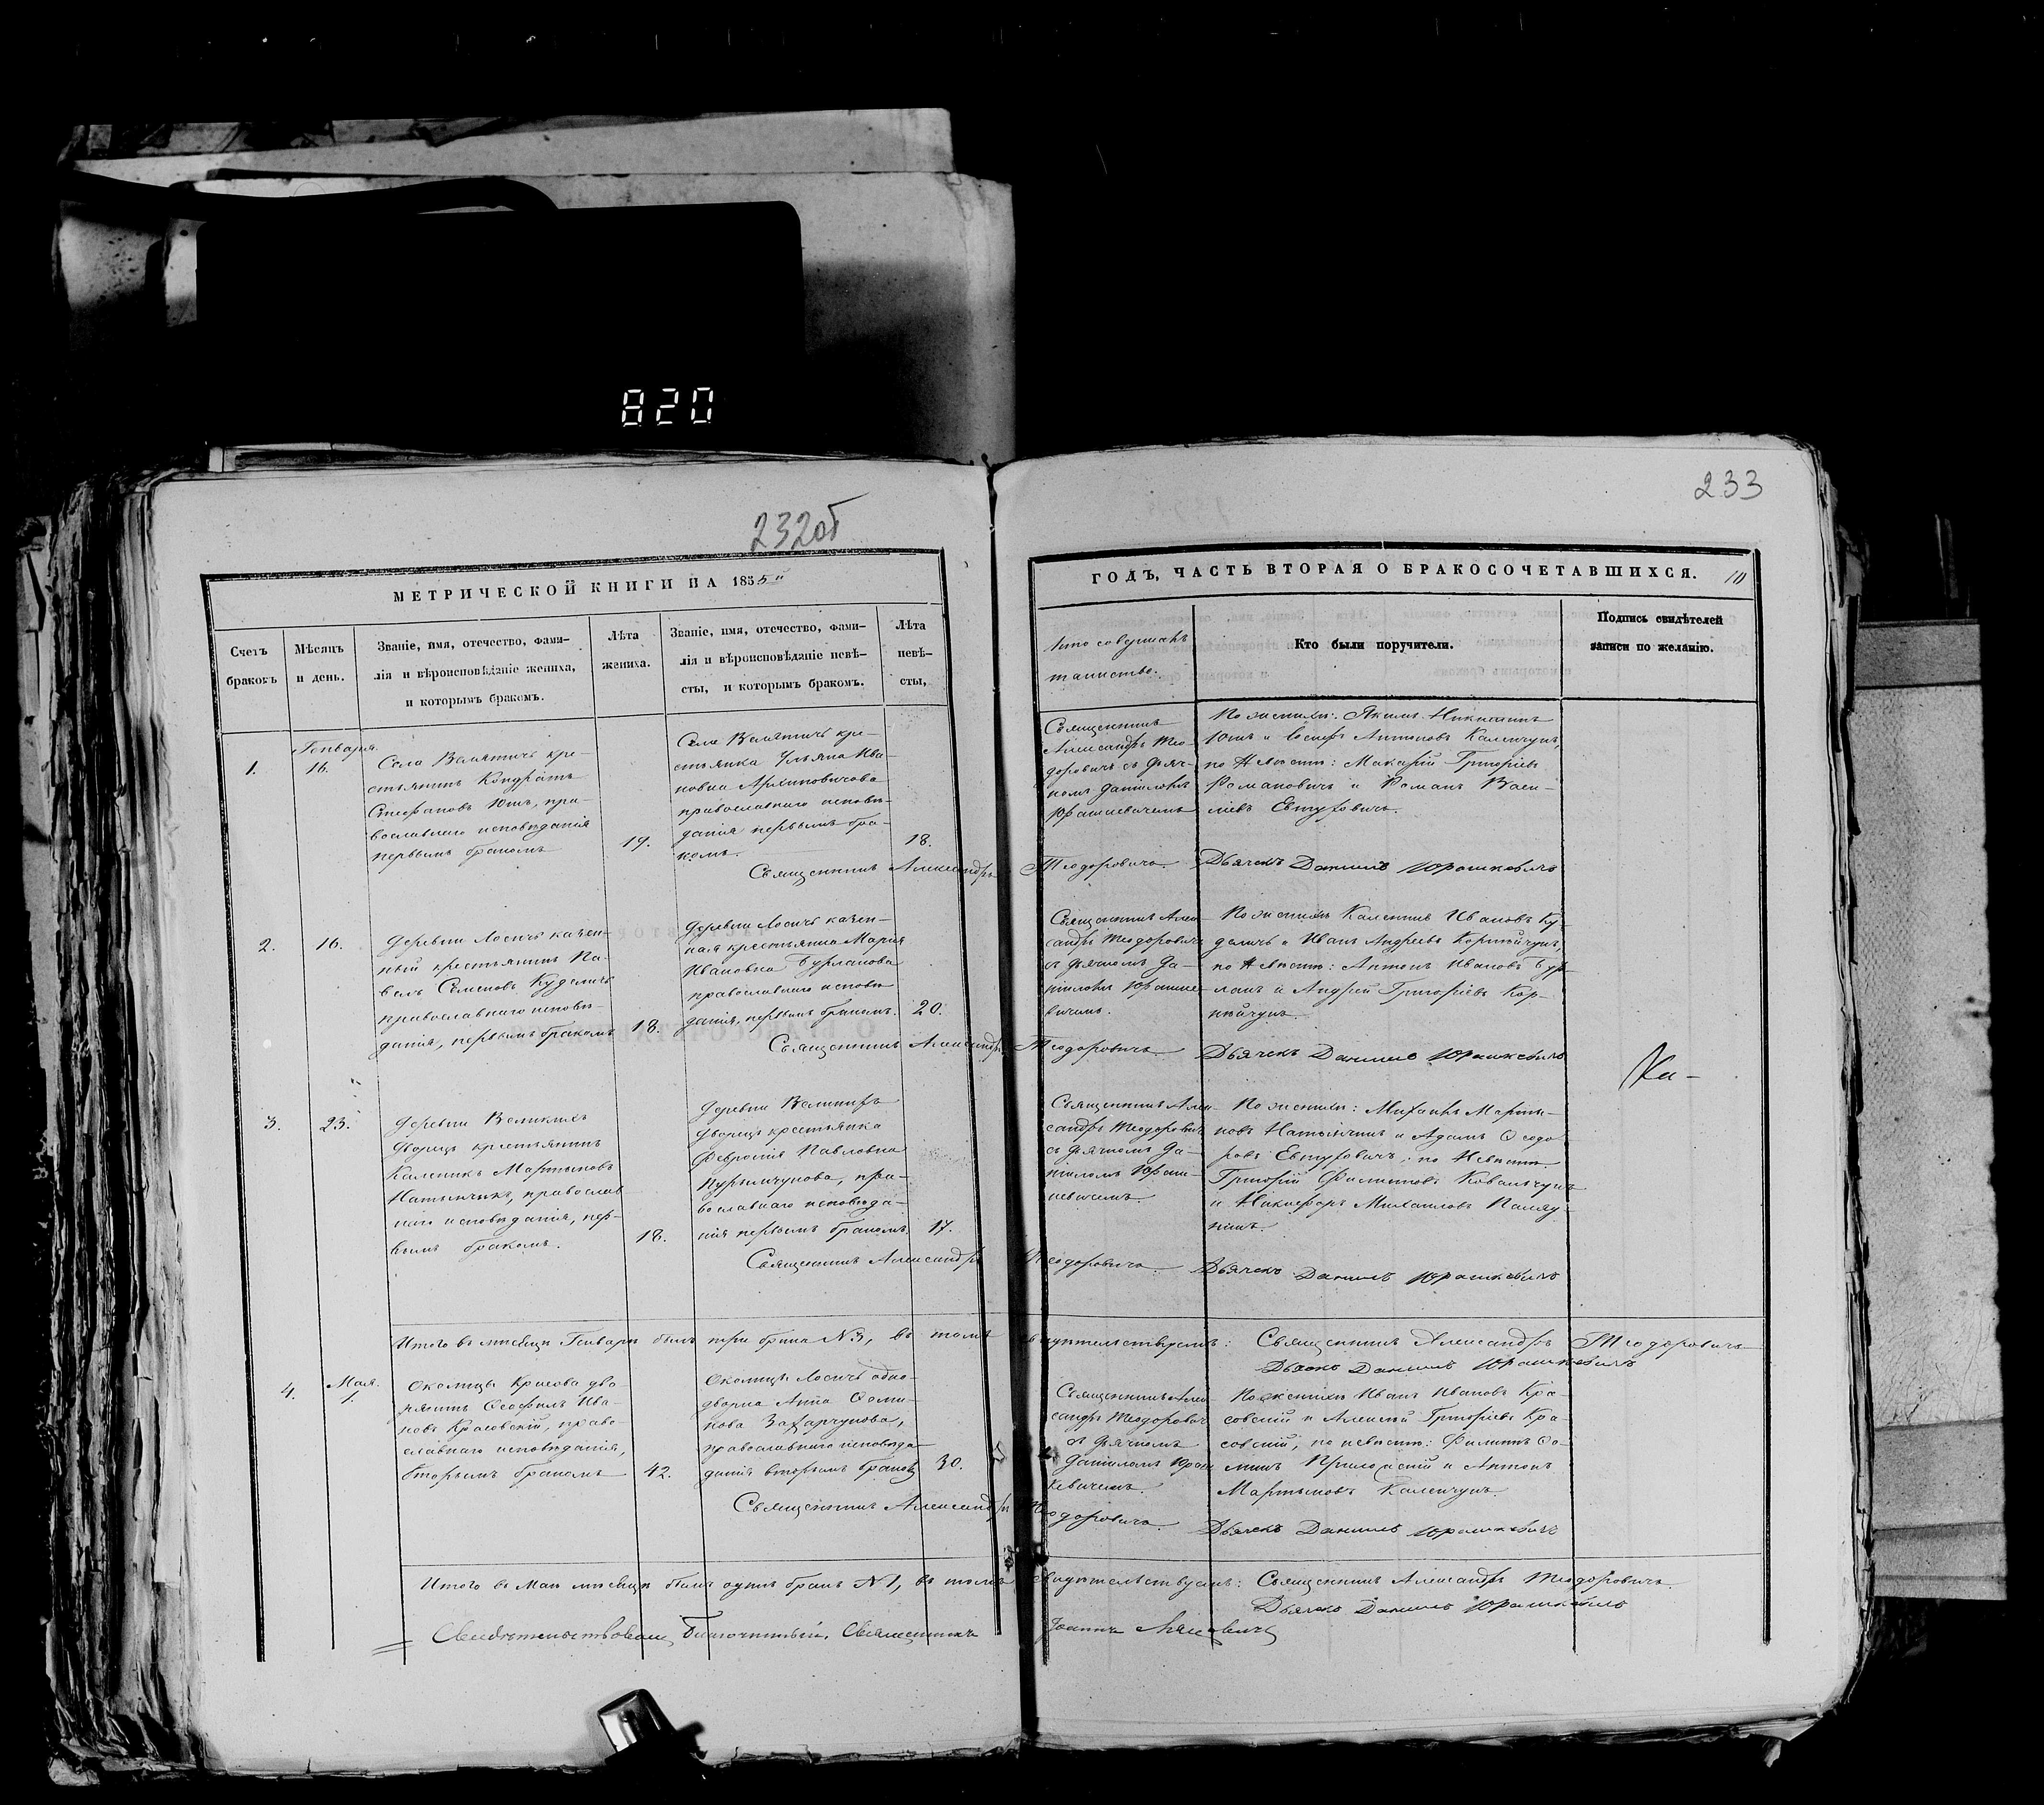 820
232об
233
МЕТРИЧЕСКОЙ КНИГИ НА 1855й
ГОДЪ, ЧАСТЬ ВТОРАЯ О БРАКОСОЧЕТАВШИХСЯ. 10
Счетъ
браковъ
Мѣсяцъ
и день.
Званіе, имя, отечество, фами-
лія и вѣроисповѣданіе жениха,
и которымъ бракомъ.
Лѣта
жениха.
Званіе, имя, отечество, фами-
лія и вѣроисповѣданіе невѣ-
сты, и которымъ бракомъ.
Лѣта
невѣ-
сты,
Кто совершалъ
таинство.
Кто были поручители.
Подпись свидѣтелей
записи по желанію.
1.
Генваря
16.
Села Велятичъ кре-
стьянинъ Кондратъ
Стефановъ Юшъ, пра-
вославнаго исповѣданія
первымъ бракомъ
19.
Села Велятичъ кре-
стьянка Ульяна Ива-
новна
православнаго исповѣ-
данія первымъ бра-
комъ.
18.
Священникъ
Александръ Тео-
доровичъ съ дьяч-
комъ Даніиломъ
Юрашкевичемъ
По женихѣ: Якимъ
Юшъ и Іосифъ Антоновъ Каленчукъ,
по Невѣстѣ: Макарій Григорьевъ
Романовичъ и Романъ Васи-
льевъ Евтуховичъ.
Священникъ Александръ Теодоровичъ. Дьячекъ Даниилъ Юрашкевичъ
2.
16.
Деревни Лосичъ казен-
ный крестьянинъ Па-
велъ Семеновъ Куделичъ
православнаго исповѣ-
данія, первымъ бракомъ
18.
Деревни Лосичъ казен-
ная крестьянка Марія
Ивановна Бурлакова
православнаго исповѣ
данія, первымъ бракомъ.
20.
Священникъ Алек-
сандръ Теодоровичъ
съ дьячкомъ Да-
ніиломъ Юрашке-
вичемъ.
По женихѣ Ивановъ Ку-
деличъ и Иванъ Андреевъ
по Невѣстѣ: Антонъ Ивановъ Бур-
лакъ и Андрей Григорьевъ
Священникъ Александръ Теодоровичъ. Дьячекъ Даниилъ Юрашкевичъ
Ка-
3.
23.
Деревни Великихъ
Дворецъ крестьянинъ
Каленикъ Мартыновъ
православ
наго исповѣданія, пер-
вымъ бракомъ.
18.
Деревни Великихъ
Дворецъ крестьянка
Февронія Павловна
пра-
вославнаго исповѣда-
нія первымъ бракомъ.
17.
Священникъ Алек-
сандръ Теодоровичъ
съ дьячкомъ Да-
ніиломъ Юраш-
кевичемъ.
По женихѣ: Михаилъ Марты-
новъ и Адамъ Ѳеодо-
ровъ Евтуховичъ; по Невѣстѣ
Григорій Филиповъ Ковальчукъ
и Никифоръ Михаиловъ
Священникъ Александръ Теодоровичъ. Дьячекъ Даниилъ Юрашкевичъ
Итого въ мѣсяцѣ Генварѣ было три брака №3, въ томъ свидѣтельствуемъ: Священникъ Александръ Теодоровичъ
Дьячекъ Даниилъ Юрашкевичъ
4.
Мая.
1.
Околицы Красова дво-
рянинъ Ѳеофилъ Ива-
новъ Красовскій, право-
славнаго исповѣданія,
вторымъ бракомъ
42.
Околицы Лосичъ одно-
дворка Анна Ѳоми-
нова Захарчукова,
православнаго исповѣда-
нія вторымъ бракомъ
30.
Священникъ Алек-
сандръ Теодоровичъ
съ дьячкомъ
Даніиломъ Юраш-
кевичемъ.
По женихѣ Иванъ Ивановъ Кра-
совскій и Алексій Григорьевъ Кра-
совскій, по невѣстѣ: Филипъ Ѳо-
минъ и Антонъ
Мартыновъ Каленчукъ.
Священникъ Александръ Теодоровичъ. Дьячекъ Даниилъ Юрашкевичъ
Итого въ Маѣ мѣсяцѣ былъ одинъ бракъ №1, въ томъ свидѣтельствуемъ: Священникъ Александръ Теодоровичъ.
Дьячекъ Даниилъ Юрашкевичъ
Свидѣтельствовалъ Благочинный, Священникъ Іоаннъ